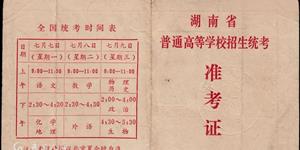 全国统考时间表
日期 七月七日 七月八日 七月九日
(星期一) (星期二) (星期三)
上午 9:00—11:30 9:00—11:00 9:00—11:00
语文 数学 物理 历史
下午 2:30—4:30 2:30—4:30 2:00—4:00
政治
化学 地理 外语 4:30—5:30
生物
湖南省
普通高等学校招生统考
准考证